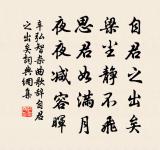 自君之出矣
梁尘静不飛
思君如满月
夜夜减容暉
辛弘智杂曲歌辞自君
之出矣詞典網集